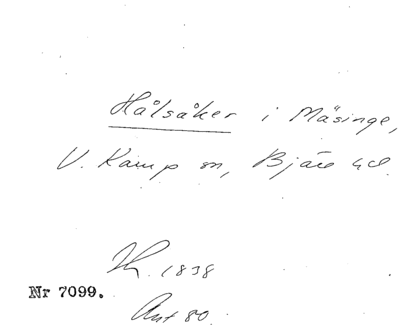 Hålsåker i Mäsinge,
V. Kamp sn, Bjäre hd.
1838
Nr 7099.
Ant 80.